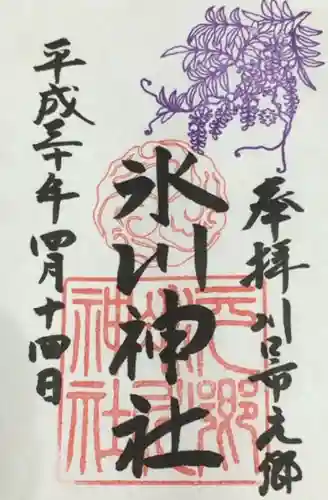 奉拝 川口市元郷
氷川神社
平成三十年四月十四日
元郷
氷川
神社